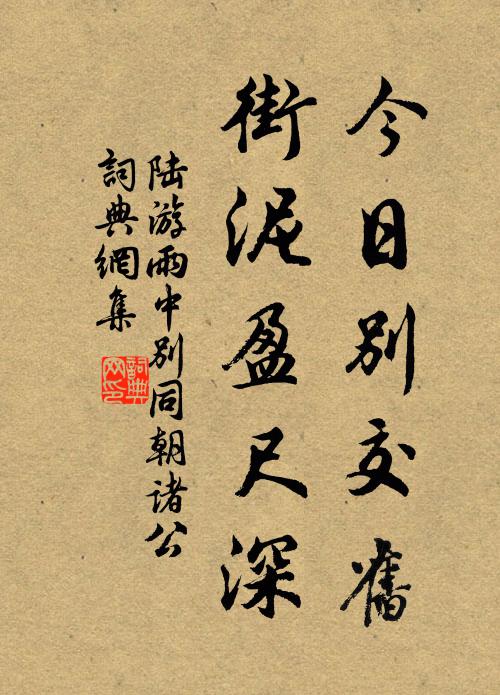 今日别交舊
街泥盈尺深
陆游雨中别同朝诸公
詞典網集
詞典網印